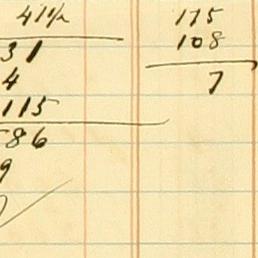 41½
31
4
115
586
9
115
108
7